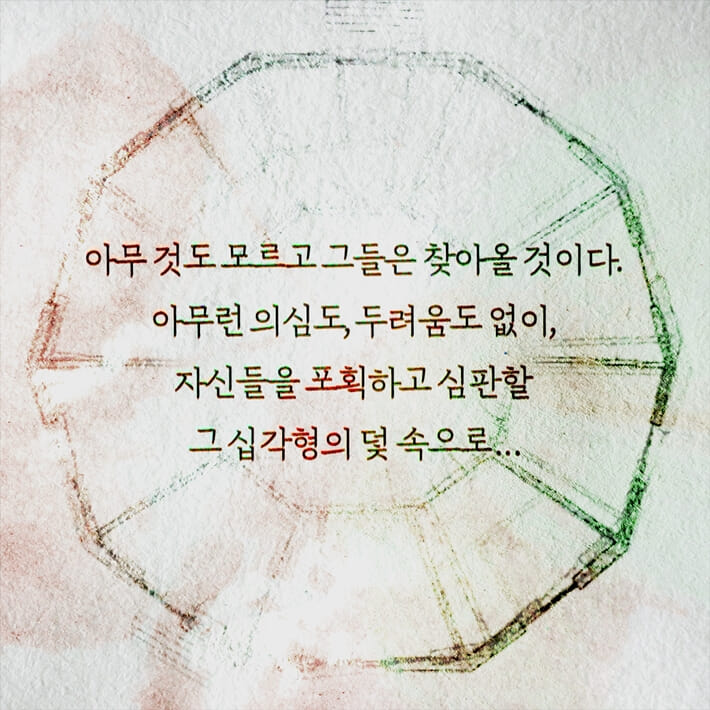 아무 것도 모르고 그들은 찾아올 것이다.
아무런 의심도, 두려움도 없이,
자신들을 포획하고 심판할
그 십각형의 덫 속으로...